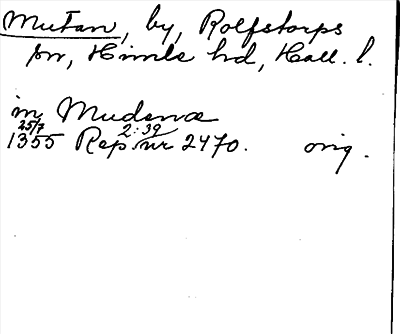 Mutan, by, Rolfstorps
sn, Himle hd, Hall. l.
in Mudanæ
25/7 2:39
1355 Rep. nr 2470. orig.